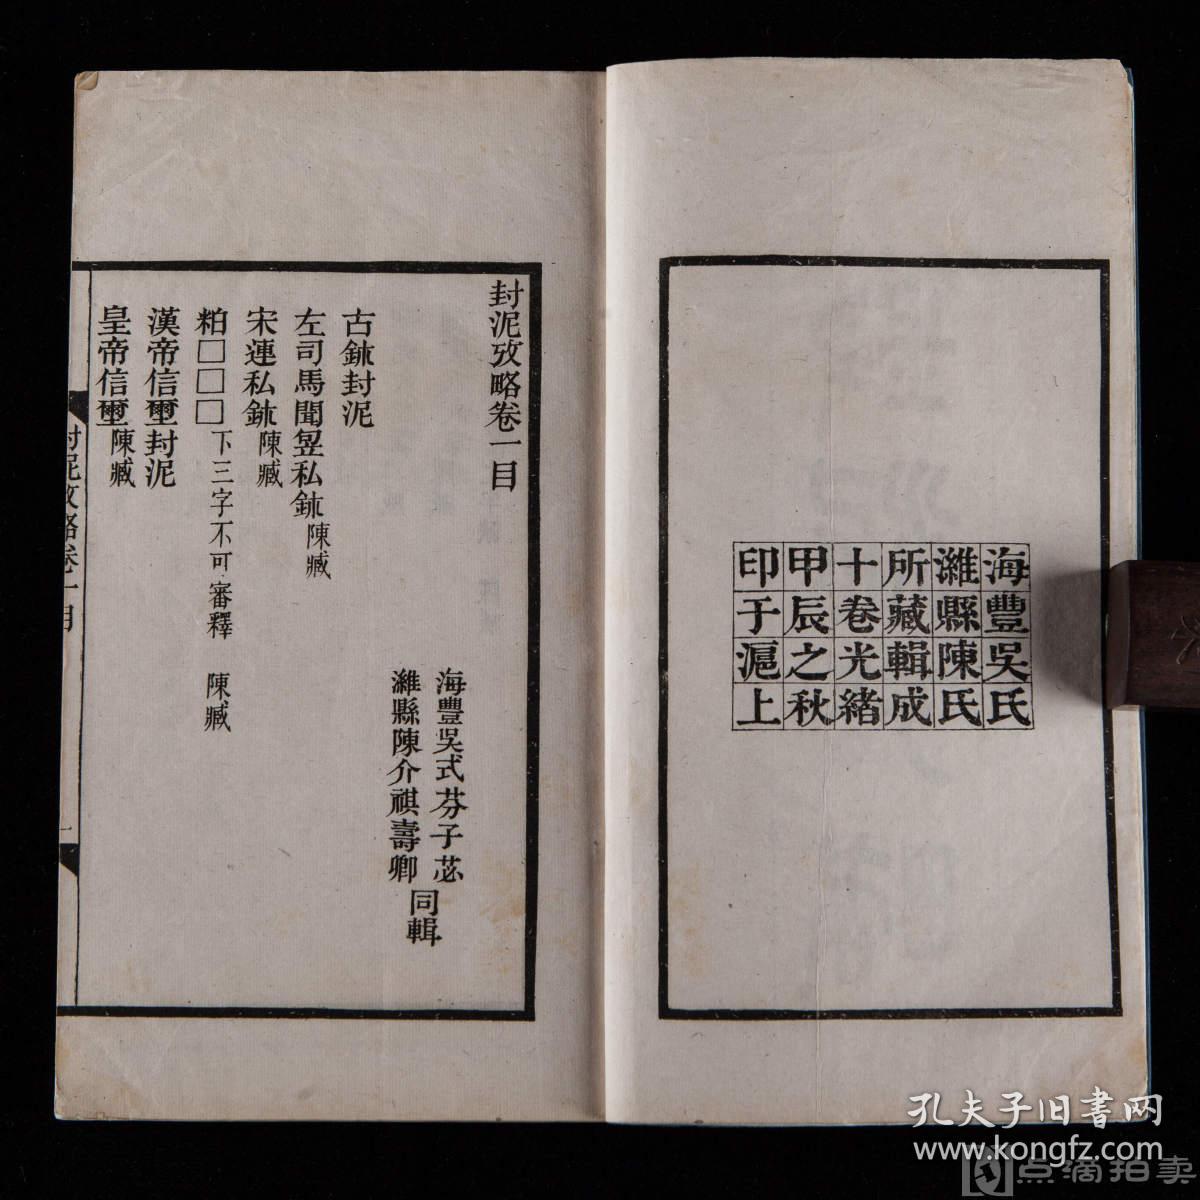 海豐吳氏
濰縣陳氏
所藏輯成
十卷光緒
甲辰之秋
印于滬上
封泥攷略卷一目
海豐吳式芬子苾
濰縣陳介祺壽卿
同輯
古鉥封泥
左司馬聞䇂私鉥陳臧
宋連私鉥陳臧
粕□□□下三字不可審釋 陳臧
漢帝信璽封泥
皇帝信璽陳臧
封泥攷略卷一目
一
孔夫子旧書网
www.kongfz.com
点滴拍卖